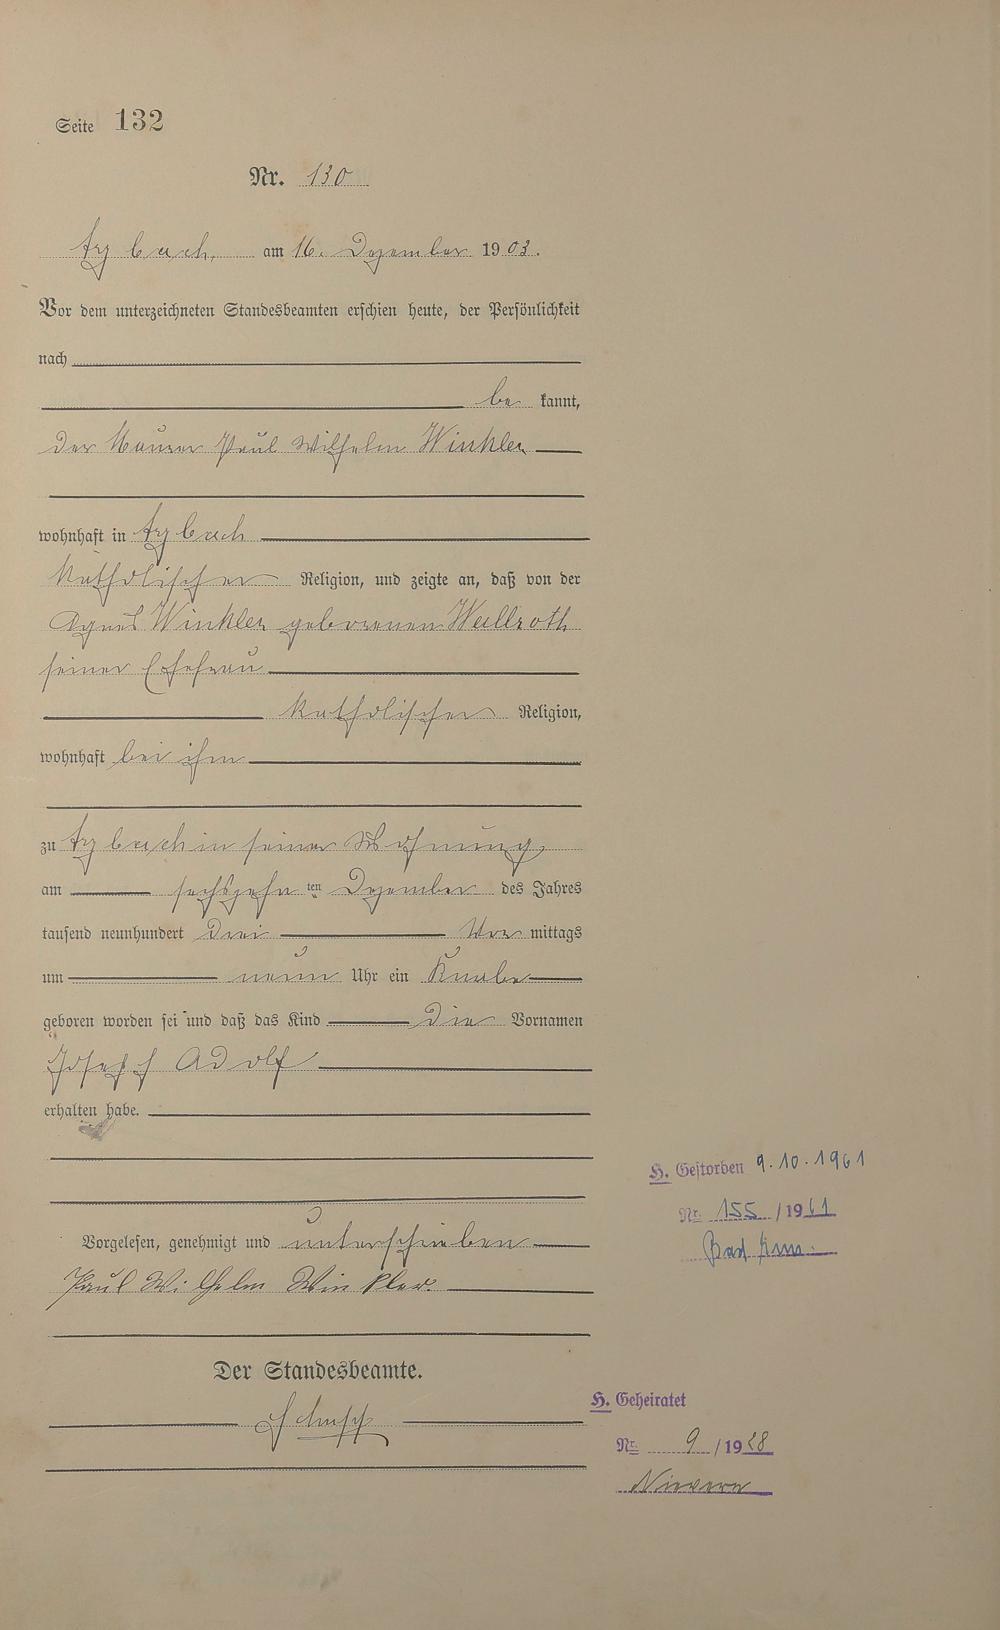 Seite 132
Nr. 130
Arzbach, am 16. Dezember 1903.
Vor dem unterzeichneten Standesbeamten erschien heute, der Persönlichkeit
nach
be kannt,
der Maurer Paul Wilhelm Winkler
wohnhaft in Arzbach
katholischer Religion, und zeigte an, daß von der
Agnes Winkler geborenen Wallroth
seiner Ehefrau
katholischer Religion,
wohnhaft bei ihm
zu Arzbach in seiner Wohnung
am sechszehn ten Dezember des Jahres
tausend neunhundert drei Vor mittags
um neun Uhr ein Knabe
geboren worden sei und daß das Kind die Vornamen
Joseph Adolf
erhalten habe.
H. Gestorben 9.10.1961
Nr. 155 / 1961
Bad Ems
Vorgelesen, genehmigt und unterschrieben
Paul Wilhelm Winkler.
Der Standesbeamte.
H. Geheiratet
Nr. 9 / 1928
Nievern